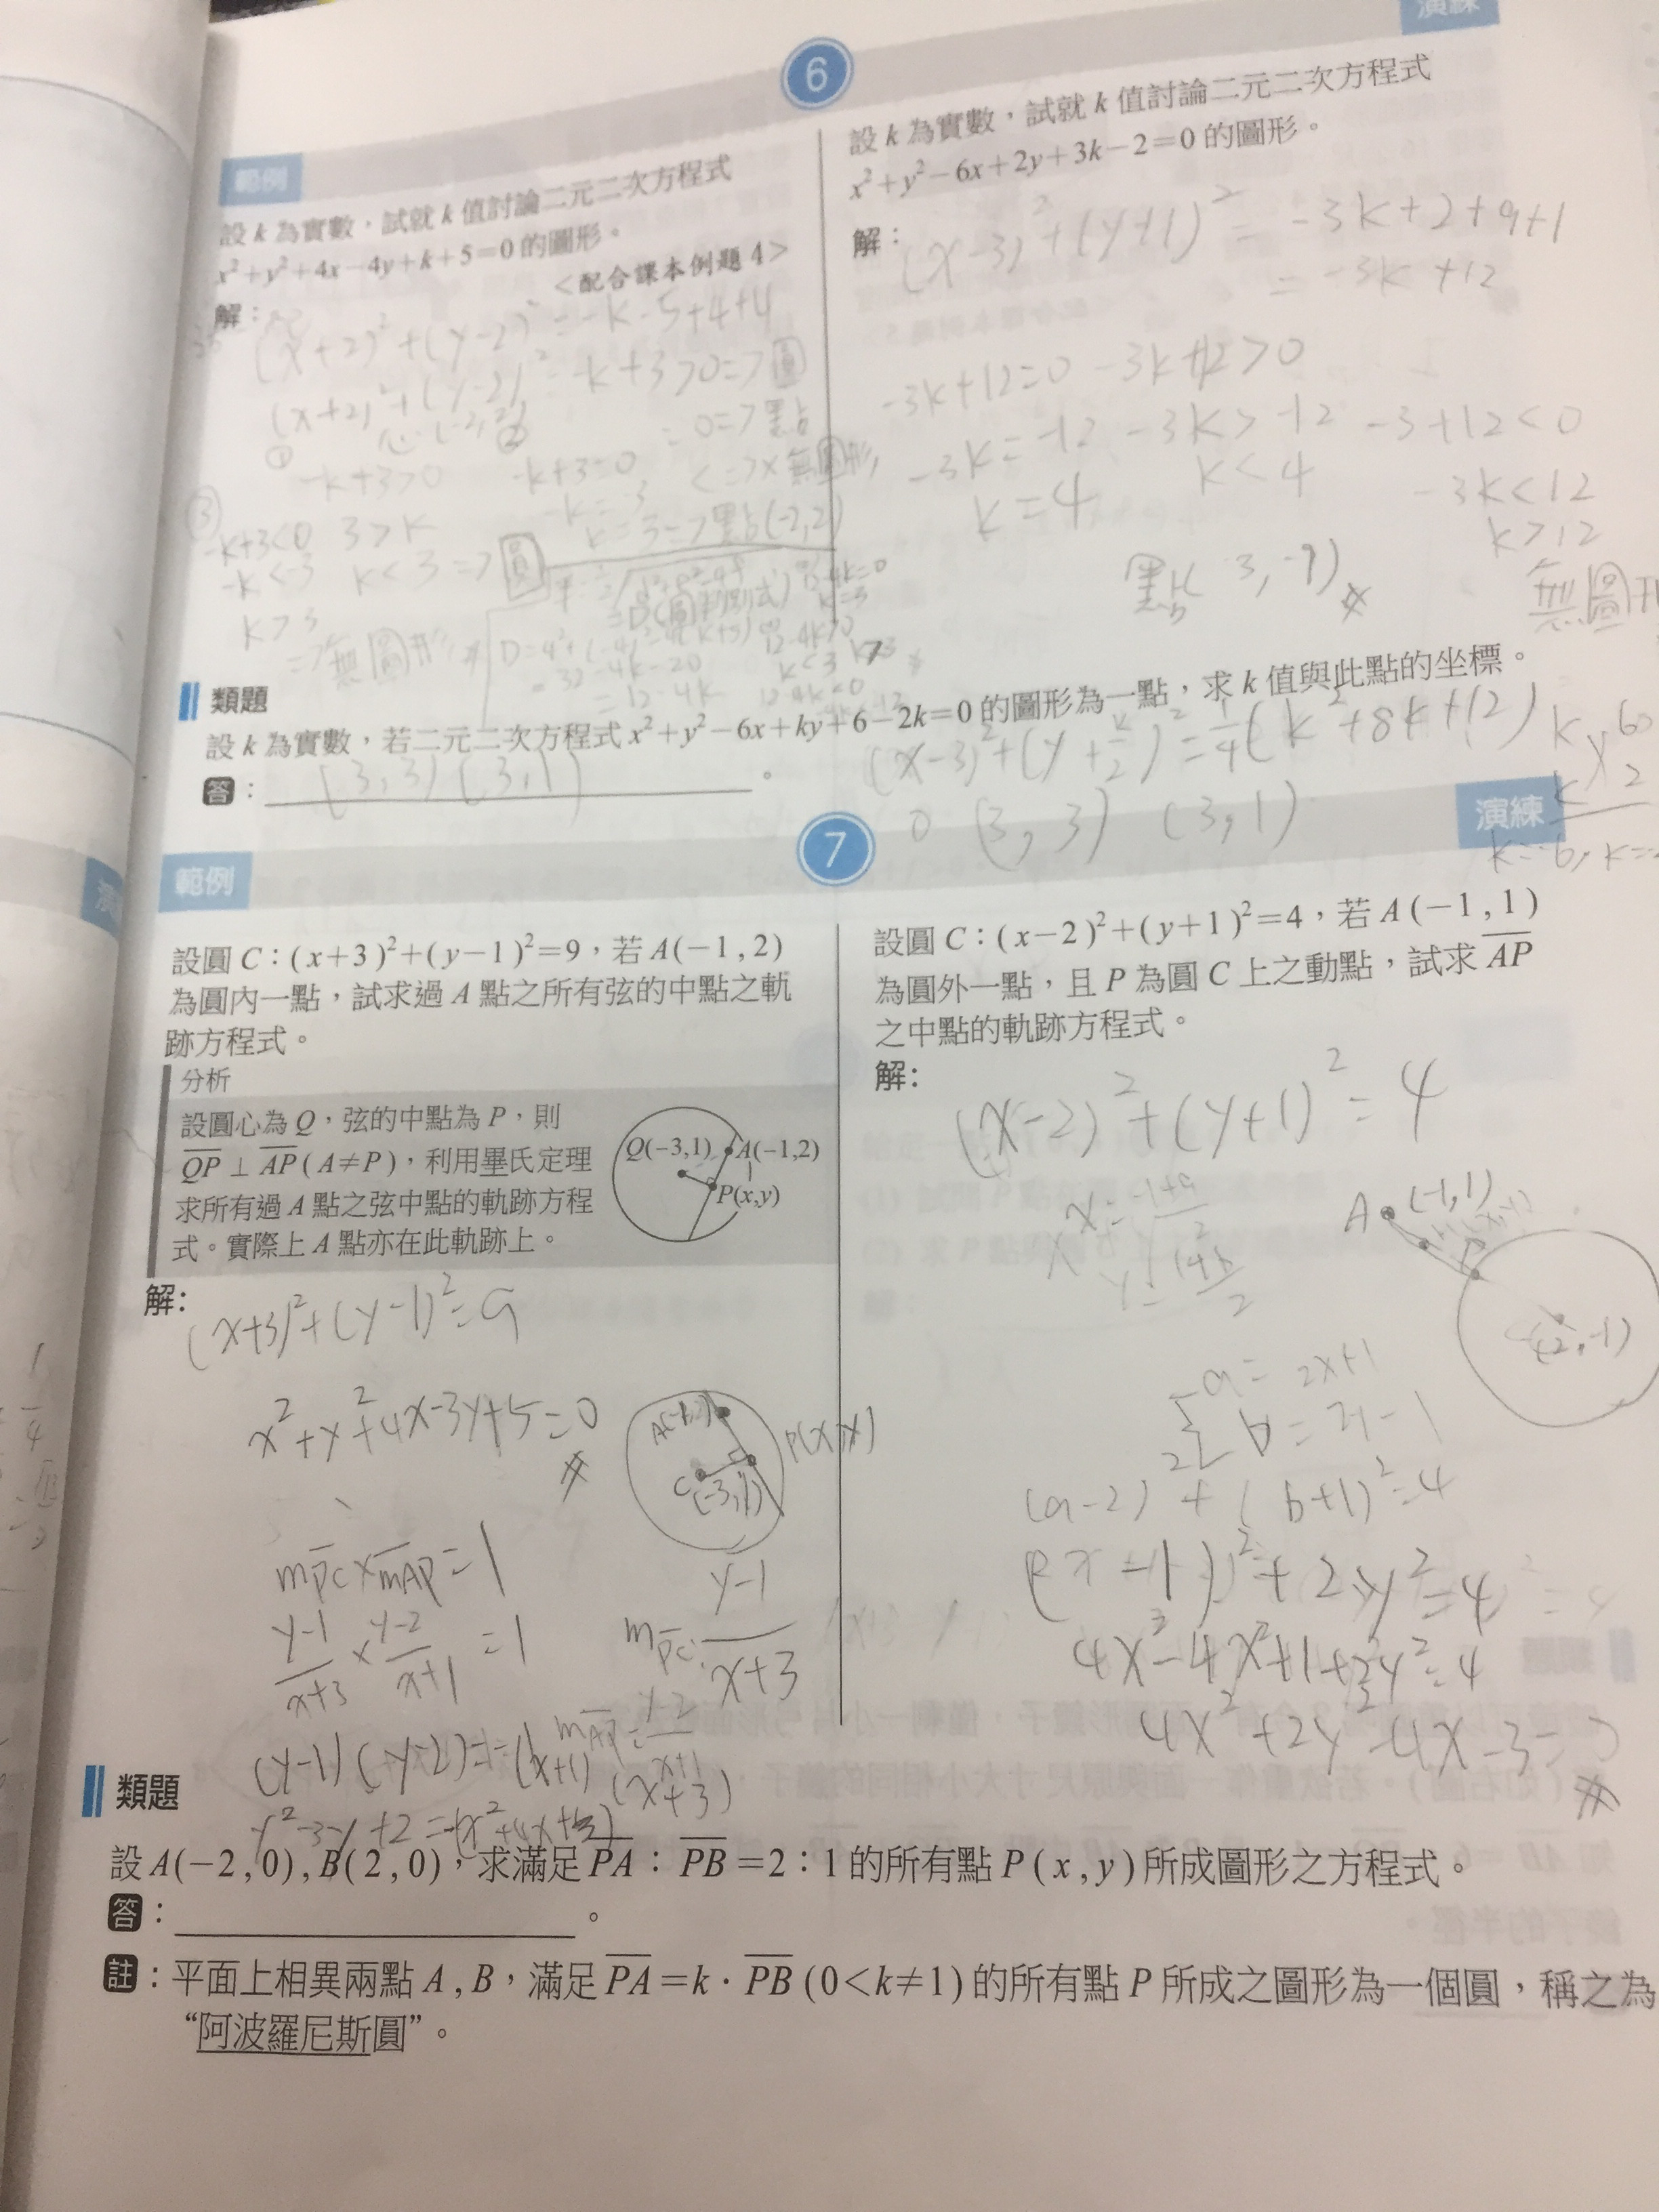 演練
6
範例
設 k 為實數，試就 k 值討論二元二次方程式
x²+y²+4x−4y+k+5=0 的圖形。
<配合課本例題 4>
解：
(x+2)²+(y−2)²=−k−5+4+4
(x+2)²+(y−2)²=−k+3>0=>圓
=0=>點
心(-2,2)
① ②
−k+3>0
−k+3=0
<=>x無圖形
③
−k+3<0
3>k
−k=−3
−k<−3
k<3=>圓
k=3=>點(-2,2)
k>3
=>無圖形
D=4²+(-4)²-4(k+5)
=32-4k-20
=12-4k
設 k 為實數，試就 k 值討論二元二次方程式
x²+y²−6x+2y+3k−2=0 的圖形。
解：
(x−3)²+(y+1)²=−3k+2+9+1
=−3k+12
−3k+12=0 −3k+12>0
−3k=−12 −3k>−12 −3+12<0
k=4
k<4
−3k<12
k>12
點(3,-1)
無圖形
類題
設 k 為實數，若二元二次方程式 x²+y²−6x+ky+6−2k=0 的圖形為一點，求 k 值與此點的坐標。
答：(3,3)(3,1)。
(x−3)²+(y+k/2)²=1/4(k²+8k+12)
0 (3,3) (3,1)
7
範例
設圓 C：(x+3)²+(y−1)²=9，若 A(−1,2)
為圓內一點，試求過 A 點之所有弦的中點之軌
跡方程式。
分析
設圓心為 Q，弦的中點為 P，則
QP⊥AP(A≠P)，利用畢氏定理
求所有過 A 點之弦中點的軌跡方程
式。實際上 A 點亦在此軌跡上。
Q(−3,1)
A(−1,2)
P(x,y)
解：
(x+3)²+(y−1)²=9
x²+y²+4x−3y+5=0
C(-3,1)
mPC×mAP=1
y−1/x+3 × y−2/x+1 =1
mPC: y−1/x+3
mAP= y−2/x+1
(y−1)(y−2)=−(x+1)(x+3)
y²−3y+2=−(x²+4x+3)
演練
設圓 C：(x−2)²+(y+1)²=4，若 A(−1,1)
為圓外一點，且 P 為圓 C 上之動點，試求 AP
之中點的軌跡方程式。
解：
(x−2)²+(y+1)²=4
A (-1,1)
x=−1+a/2
y=1+b/2
(2,-1)
a=2x+1
b=2y−1
(a−2)²+(b+1)²=4
(2x−1)²+2y²=4
4x²−4x+1+2y²=4
4x²+2y²−4x−3=0
類題
設 A(−2,0),B(2,0)，求滿足 PA：PB=2：1 的所有點 P(x,y) 所成圖形之方程式。
答：。
註：平面上相異兩點 A,B，滿足 PA=k·PB (0<k≠1) 的所有點 P 所成之圖形為一個圓，稱之為
“阿波羅尼斯圓”。